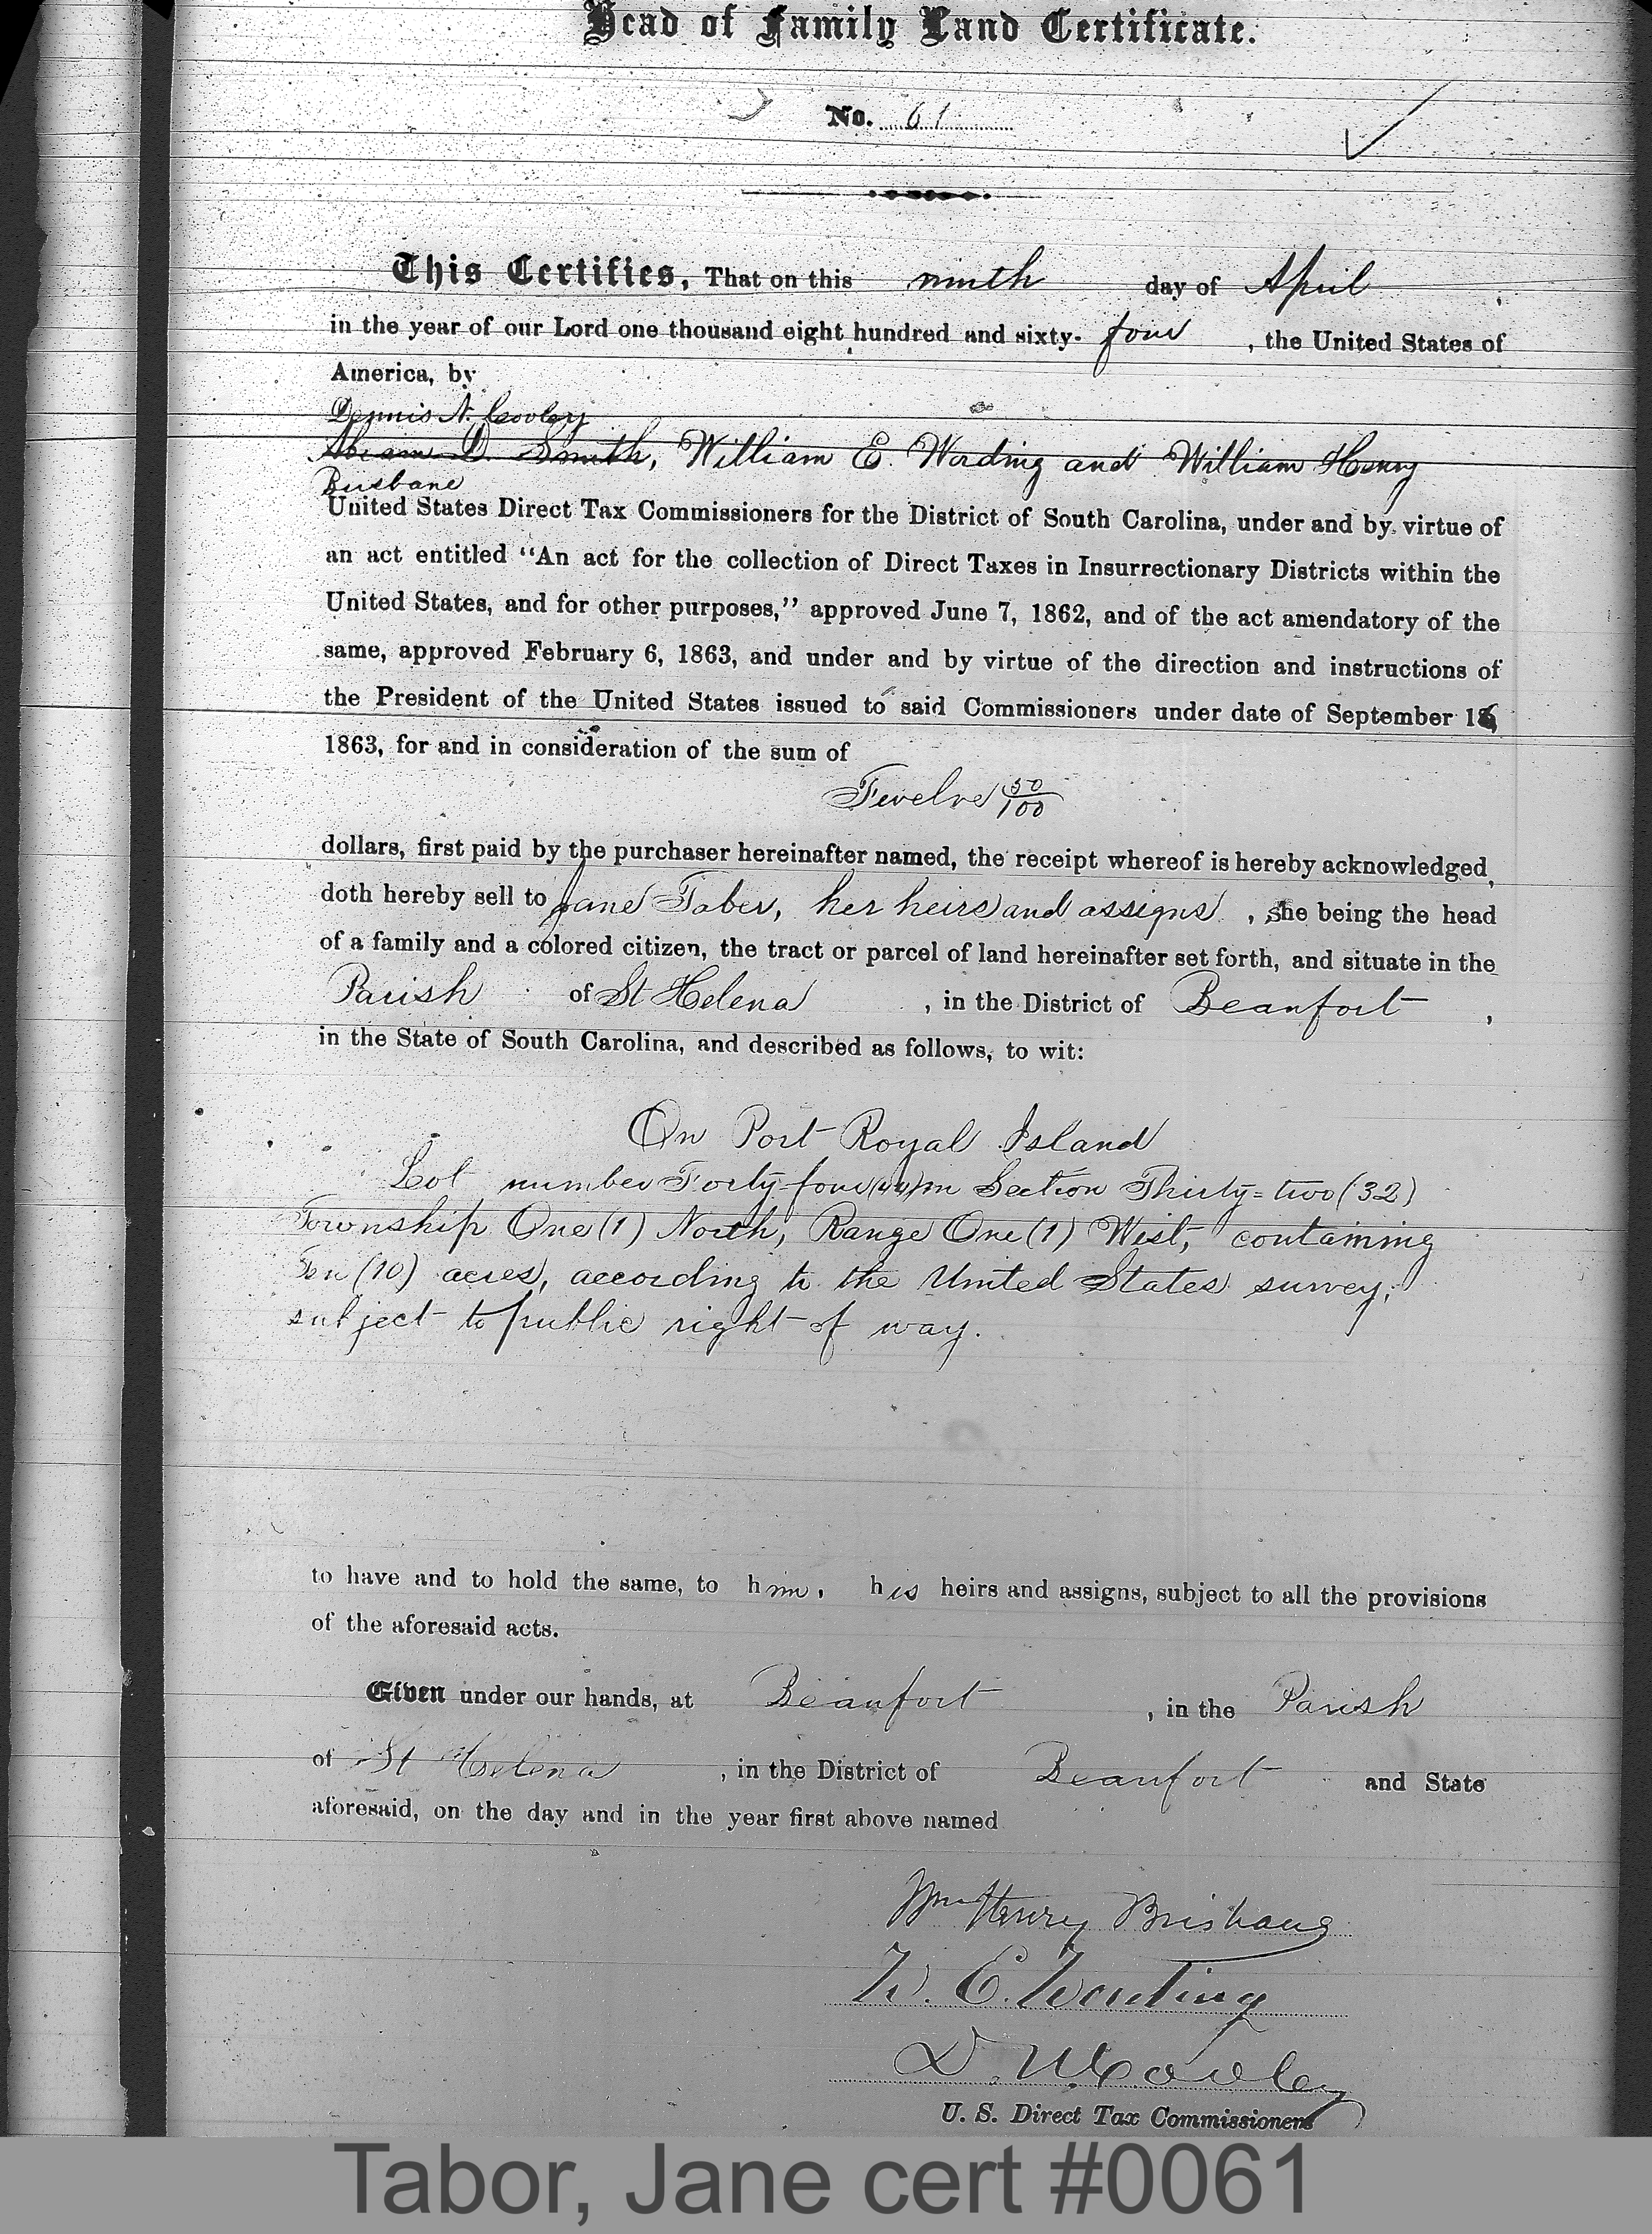 Head of Family Land Certificate.
No. 61
This Certifies, That on this ninth day of April
in the year of our Lord one thousand eight hundred and sixty- four , the United States of
America, by
Dennis N. Cooley
Abram D. Smith, William E. Wording and William Henry
Brisbane
United States Direct Tax Commissioners for the District of South Carolina, under and by virtue of
an act entitled “An act for the collection of Direct Taxes in Insurrectionary Districts within the
United States, and for other purposes,” approved June 7, 1862, and of the act amendatory of the
same, approved February 6, 1863, and under and by virtue of the direction and instructions of
the President of the United States issued to said Commissioners under date of September 16
1863, for and in consideration of the sum of
Twelve 50/100
dollars, first paid by the purchaser hereinafter named, the receipt whereof is hereby acknowledged,
doth hereby sell to Jane Taber, her heirs and assigns , she being the head
of a family and a colored citizen, the tract or parcel of land hereinafter set forth, and situate in the
Parish of St Helena , in the District of Beaufort ,
in the State of South Carolina, and described as follows, to wit:
On Port Royal Island
Lot number Forty-four (44) in Section Thirty=two (32)
Township One (1) North, Range One (1) West, containing
Ten (10) acres, according to the United States survey,
subject to public right of way.
to have and to hold the same, to him, his heirs and assigns, subject to all the provisions
of the aforesaid acts.
Given under our hands, at Beaufort , in the Parish
of St Helena , in the District of Beaufort and State
aforesaid, on the day and in the year first above named
Wm Henry Brisbane
W. E. Wording
D. N. Cooley
U. S. Direct Tax Commissioners
Tabor, Jane cert #0061